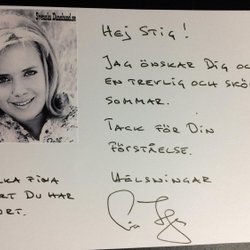 Svenska Dansband.se
Hej Stig!
Jag önskar Dig oc
en trevlig och skö
sommar.
Tack för Din
förståelse.
Hälsningar
lka fina
rt Du har
ort.